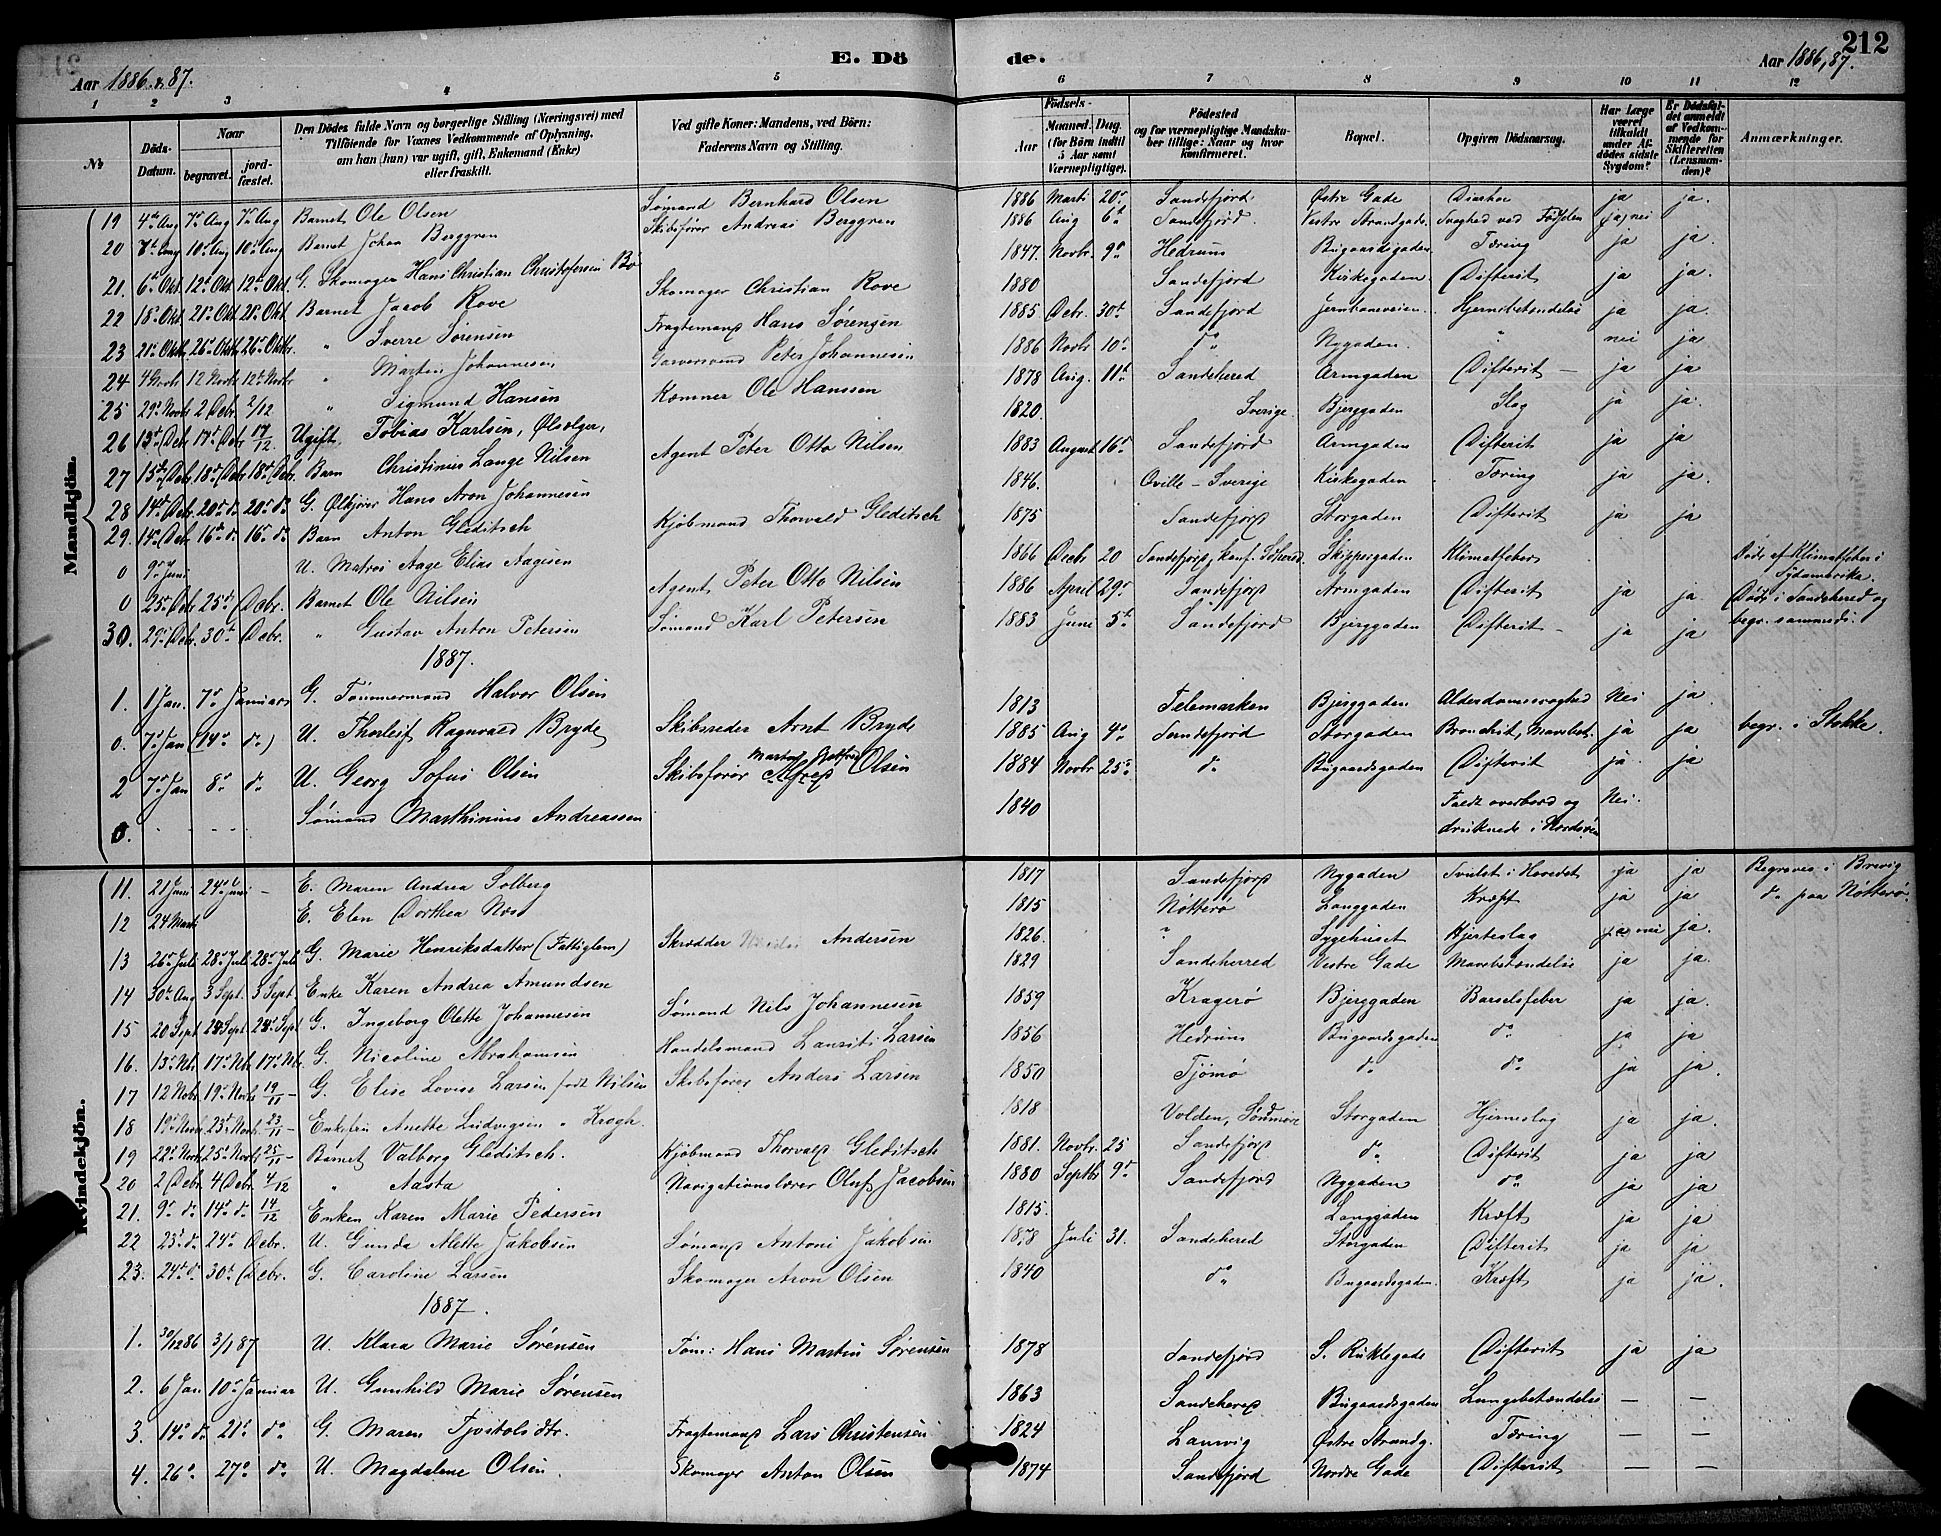 E. Dö de. 212
Aar 1886 & 87. Aar 1886, 87.
1 2 3 4 5 6 7 8 9 10 11 12
№ Döds-Datum. Naar begravet. jordfæstet. Den Dödes fulde Navn og borgerlige Stilling (Næringsvei) med Tilföiende for Voxnes Vedkommende af Oplysning, om han (hun) var ugift, gift, Enkemand (Enke) eller fraskilt. Ved gifte Koner: Mandens, ved Börn: Faderens Navn og Stilling. Födsels- Aar Maaned. Dag. (for Börn indtil 5 Aar samt Værnepligtige). Födested og for værnepligtige Mandskaber tillige: Naar og hvor konfirmeret. Bopæl. Opgiven Dödsaarsag. Har Læge været tilkaldt under Afdödes sidste Sygdom? Er Dödsfaldet anmeldt af Vedkommende for Skifteretten (Lensmanden)? Anmærkninger.
Mandkjön.
19 4de Aug 7de Aug 7de Aug Barnet Ole Olsen Sømand Bernhard Olsen 1886 Marti 20de Sandefjord Østre Gade Diarhoe ja ja.
20 7de Aug 10de Aug 10de Aug Barnet Johan Berggren Skibsfører Andreas Berggren 1886 Aug 6te Sandefjord. Vestre Strandgade. Svaghed ved Fødselen ja, nei
21. 6te Okt 12te Okt 12te Okt. G. Skomager Hans Christian Christofersen Bø 1847. Novbr. 9de Hedrum Bugaardsgaden Tæring ja ja.
22 18de Okt 21de Okt 21de Okt Barnet Jacob Rove Skomager Christian Rove 1880 Sandefjord Kirkegaden. Difterit ja ja.
23 21de Oktbr 26de Oktbr 26de Oktbr. " Sverre Sørensen Fragtemand Hans Sørensen 1885 Debr. 30te Sandefjord Jernbaneveien. Hjernebetændelse ja ja
24 4 Novbr 12 Novbr 12te Novbr " Morten Johannesen Garversvend Peter Johannesen 1886 Novbr 10de do Nygaden. " nei ja
25 29de Novbr 2 Debr. 2/12 " Sigmund Hansen Kæmner Ole Hanssen 1878 Aug. 11te Sandeherred Armgaden Difterit ja ja
26 13de Debr 17de Debr 17/12. Ugift. Tobias Karlsen, Ølsælger, 1820. Sverige. Bjerggaden Slag ja ja.
27 15de Debr 18de Debr 18de Debr. Barn Christinius Lange Nilsen Agent Peter Otto Nilsen 1883 August 16de Sandefjord Armgaden Difterit ja ja
28 14de Debr. 20de do 20de do G. Ølkjører Hans Aron Johannesen 1846. Oville - Sverige Kirkegaden Tæring ja ja
29. 14de Debr 16de do 16de do Barn Anton Gleditsch Kjøbmand Thorvald Gleditsch 1875 Sandefjord Storgaden Difterit ja ja
0 9de Juni U. Matros Aage Elias Aagesen 1866 Decbr 20 Sandefjord, konf. S.herred. Skippergaden Klimatfeber Døde af Klimatfeber i Sydamerika.
0 25de Debr 25de Debr. Barnet Ole Nilsen Agent Peter Otto Nilsen 1886 April 29de Sandefjord Armgaden Difterit ja ja. Døde i Sandeherred og begr. sammesteds.
30. 29de Debr. 30te Debr. " Gustav Anton Petersen Sømand Karl Petersen 1883 Juni 5te Sandefjord Bjerggaden Difterit ja ja
1887.
1. 1 Jan. 7de Januar G. Tømmermand Halvor Olsen 1813 Telemarken Bjerggaden Alderdomssvaghed Nei ja
0. 7de Jan (14de do) U. Thorleif Ragnvald Bryde Skibsreder Arnt Bryde 1885 Aug 4de Sandefjord Storgaden Bronchit, Mavebet. ja ja begr. i Stokke.
2 7de Jan 8de do U. Georg Sofus Olsen Skibsfører Alfred Olsen 1884 Novbr. 25de do Bugaardsgaden Difterit ja. ja
0. Sømand Marthinius Andreassen 1840 Faldt overbord og druknede i Nordsøen Nei.
Kvindekjön.
11. 21 Juni 24de Juni - E. Maren Andrea Solberg 1817 Sandefjord Nygaden Svulst i Hovedet ja ja Begraves i Brevig
12 24 Marts E. Elen Dorthea Næss 1815 Nøtterø Langgaden Kræft ja ja do paa Nøtterø.
13 26de Juli 28de Juli 28de Juli G. Marie Henriksdatter (Fattiglem) Skrædder Andersen 1826. " Sygehuset Hjerteslag nei ja.
14 30te Aug 3 Sept. 3 Sept. Enke Karen Andrea Amundsen 1829 Sandeherred Vestre Gade Mavebetændelse ja ja.
15 20 Sept 24 Sept. 24de Sept G. Ingeborg Olette Johannesen Sømand Nils Johannesen 1859 Kragerø Bjerggaden Barselsfeber ja ja.
16. 13de Nbr. 17de Nbr 17de Nbr. G. Nicoline Abrahamsen Handelsmand Laurits Larsen 1856 Hedrum Bugaardsgaden do ja ja
17 12 Nobr. 19de Novbr 19/11 - G. Elise Lovise Larsen født Nilsen Skibsfører Anders Larsen 1850 Tjømø do do ja ja.
18 19de Novbr. 23de Novbr. 23/11 - Enkefru Anette Ludvigsen " Krogh. 1818 Volden, Søndmøre Storgaden Hjerneslag ja ja.
19 22de Novbr. 25de Novbr. 25/11 - Barnet Valborg Gleditsch. Kjøbmand Thorvald Gleditsch 1881. Novbr. 25 Sandefjord do Difterit ja ja
20 2 Debr. 4 Debr. 4/12 " Aasta Navigationslærer Oluf Jacobsen 1880 Septbr 9de Sandefjord Nygaden do ja ja
21. 9de do 14de do 14/12 Enken Karen Marie Pedersen 1815. Langgaden Kræft ja ja
22 23de do 24de Debr. U. Gunda Alette Jakobsen Sømand Antoni Jakobsen 1878 Juli 31. Sandeherred Storgaden Difterit ja ja
23. 24de do 30te Debr. G. Caroline Larsen Skomager Aron Olsen 1840 do Bugaardsgaden. Kræft ja ja.
1887.
1. 30/12 86 3/1 87 U. Klara Marie Sørensen Tøm: Hans Martin Sørensen 1878 Sandefjord S. Ruklegade Difterit ja ja
2. 6 Jan 10de Januar U. Gunhild Marie Sørensen 1863 Sandeherred Bugaardsgaden Lungebetændelse — —
3. 14de do 21de do G. Maren Fjostolsdtr. Fragtemand Lars Christensen 1824 Laurvig Østre Strandg. Tæring — —
4. 26de 27de do U. Magdalene Olsen. Skomager Anton Olsen 1874 Sandefjord Nordre Gade Difterit — —